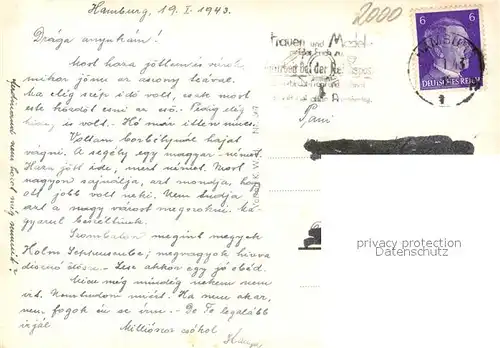 Hamburg, 19. I. 1943.
2000
Drága anyukám!
Most haza jöttem és várok,
mikor jöme az asszony teával.
Ma elég szép idő volt, csak most
este kezdett esni az eső. Pedig elég
hideg is volt. Hó már itten nincs.
Voltam borbélynál hajat
vágni. A segély egy magyar-német.
Haza jött ide, mert német. Most
nagyon sajnálja, azt mondja, hogy
ott jobb volt neki. Nem tudja
azt a nagy várost megszokni. Ma-
gyarul beszéltünk.
Szombaton megint megyek
Holm Seppensenbe; megvagyok híva
disznó ölésre. Lesz akkor egy jó ebéd.
még mindig nekem nem
írt. Nem tudom miért. Ha nem akar,
nem fogok én se írni. De Te legalább
írjál
Milliószor csókol
Frauen und Mädel
bei der Reichspost
6 6
DEUTSCHES REICH
Pani
privacy protection
Datenschutz